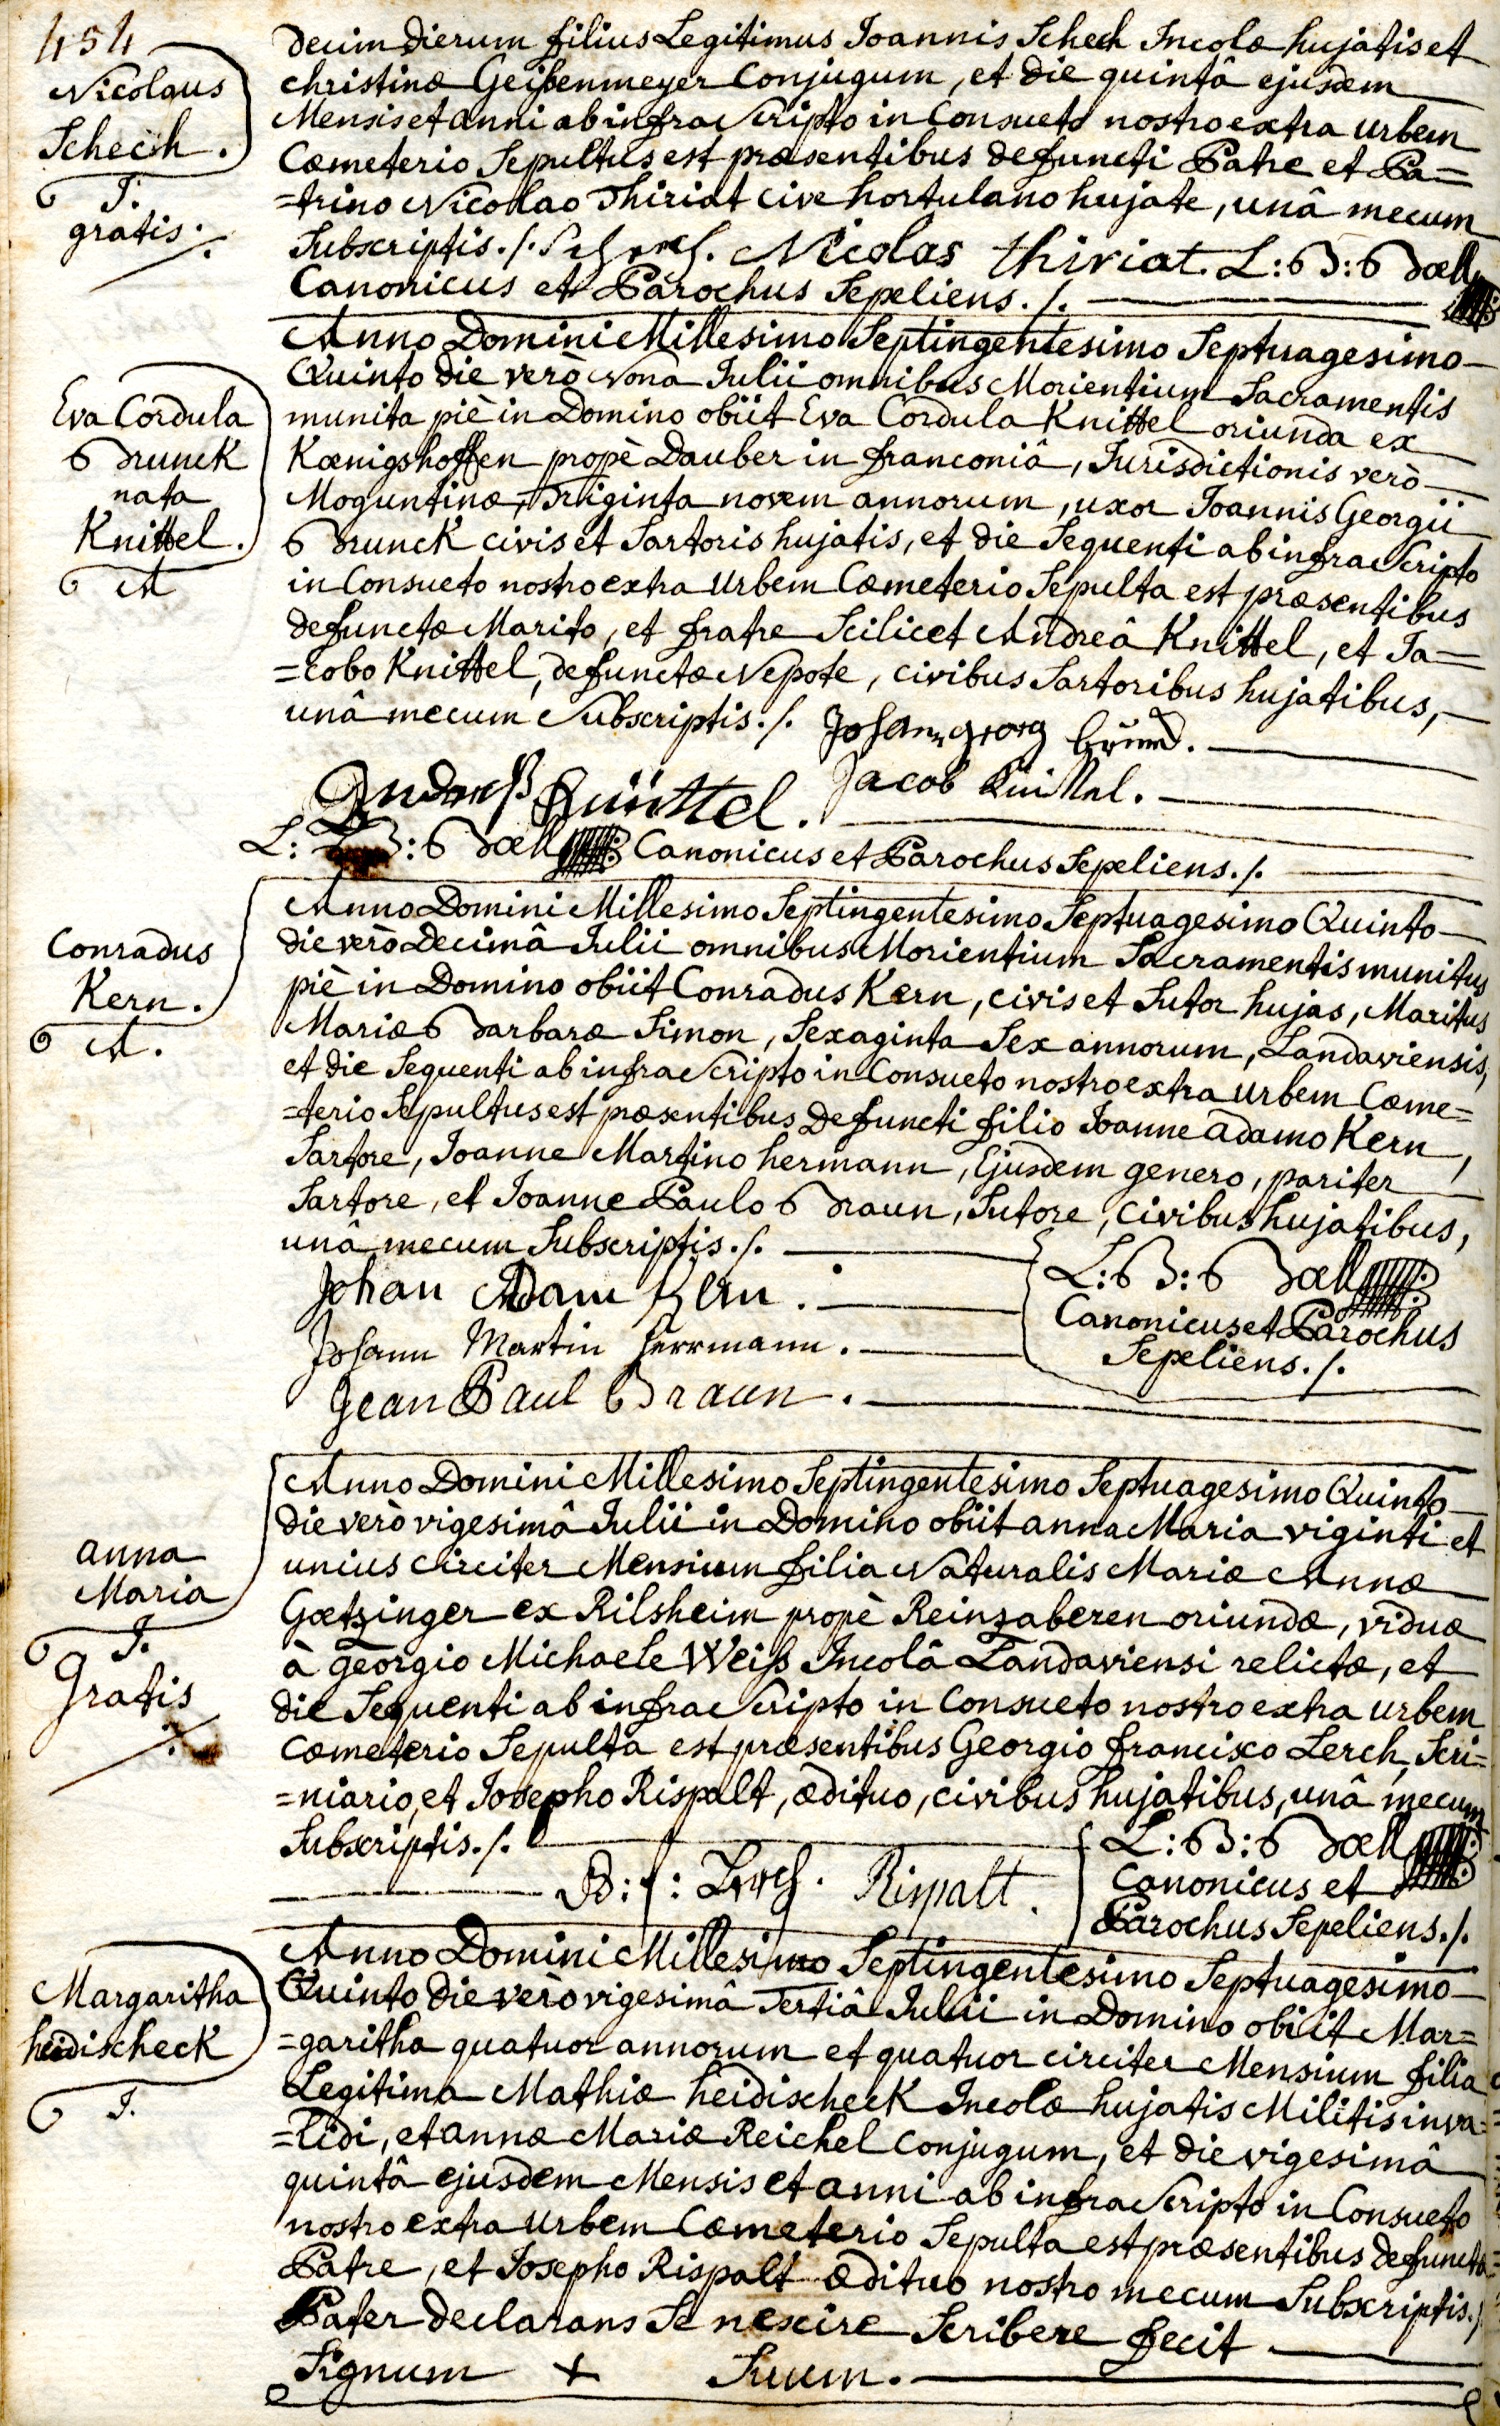 454
Nicolaus
Schech.
I.
gratis.
decim dierum filius Legitimus Joannis Schech Incolæ hujatis et
christinæ Geisenmeyer Conjugum, et die quintâ ejusdem
Mensis et anni ab infra Scripto in Consueto nostro extra urbem
Cœmeterio Sepultus est præsentibus defuncti Patre et Pa=
=trino Nicolao Thiriat cive hortulano hujate, unâ mecum
Subscriptis./. Schech. Nicolas thiriat. L: B: Boell
Canonicus et Parochus Sepeliens./.
Eva Cordula
Brunck
nata
Knittel.
A
Anno Domini Millesimo Septingentesimo Septuagesimo
Quinto die verò Nonâ Julii omnibus Morientium Sacramentis
munita piè in Domino obiit Eva Cordula Knittel oriunda ex
Kœnigshoffen propè Dauber in franconiâ, Jurisdictionis verò
Moguntinæ, Triginta novem annorum, uxor Joannis Georgii
Brunck civis et Sartoris hujatis, et die Sequenti ab infra Scripto
in Consueto nostro extra urbem Cœmeterio Sepulta est præsentibus
defunctæ Marito, et fratre Scilicet Andreâ Knittel, et Ja=
=cobo Knittel, defunctæ Nepote, civibus Sartoribus hujatibus,
unâ mecum Subscriptis./. Johann georg
Jacob Knittel.
L: B: Boell Canonicus et Parochus Sepeliens./.
Conradus
Kern.
A.
Anno Domini Millesimo Septingentesimo Septuagesimo Quinto
die verò Decimâ Julii omnibus Morientium Sacramentis munitus
piè in Domino obiit Conradus Kern, civis et Sutor hujas, Maritus
Mariæ Barbaræ Simon, Sexaginta Sex annorum, Landaviensis,
et die Sequenti ab infra Scripto in Consueto nostro extra urbem Cœme=
=terio Sepultus est præsentibus Defuncti filio Joanne adamo Kern,
Sartore, Joanne Martino hermann, Ejusdem genero, pariter
Sartore, et Joanne Paulo Braun, Sutore, civibus hujatibus,
unâ mecum Subscriptis./.
Johan Adam Kern.
Johann Martin Herrmann.
Jean Paul Braun.
L: B: Boell
Canonicus et Parochus
Sepeliens./.
anna
Maria
I.
Gratis
Anno Domini Millesimo Septingentesimo Septuagesimo Quinto
die verò vigesimâ Julii in Domino obiit anna Maria viginti et
unius circiter Mensium filia Naturalis Mariæ Annæ
Gœtzinger ex Rilsheim propè Reinzaberen oriundæ, viduæ
à georgio Michaele Weiss Incolâ Landaviensi relictæ, et
die Sequenti ab infra Scripto in Consueto nostro extra urbem
Cœmeterio Sepulta est præsentibus Georgio francisco Lerch, Scri=
=niario, et Josepho Rispalt, ædituo, civibus hujatibus, unâ mecum
Subscriptis./.
Lerch. Rispalt.
L: B: Boell
Canonicus et
Parochus Sepeliens./.
Margaritha
heidischeck
I.
Anno Domini Millesimo Septingentesimo Septuagesimo
Quinto die verò vigesimâ Tertiâ Julii in Domino obiit Mar=
=garitha quatuor annorum et quatuor circiter Mensium filia
Legitima Mathiæ heidischeck Incolæ hujatis Militis inva=
=lidi, et annæ Mariæ Reichel conjugum, et die vigesimâ
quintâ ejusdem Mensis et anni ab infra Scripto in Consueto
nostro extra urbem Cœmeterio Sepulta est præsentibus defunctæ
Patre, et Josepho Rispalt ædituo nostro mecum Subscriptis./.
Pater declarans Se nescire Scribere fecit
Signum + Suum.